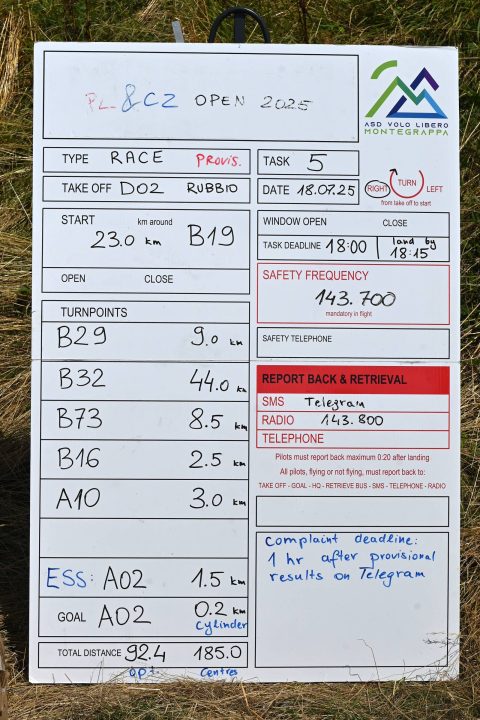 PL & CZ OPEN 2025
ASD VOLO LIBERO
MONTEGRAPPA
TYPE RACE PROVIS.
TASK 5
TAKE OFF D02 RUBBIO
DATE 18.07.25
RIGHT TURN LEFT
from take off to start
START km around
23.0 km B19
OPEN CLOSE
WINDOW OPEN CLOSE
TASK DEADLINE 18:00 land by 18:15
SAFETY FREQUENCY
143.700
mandatory in flight
SAFETY TELEPHONE
TURNPOINTS
B29 9.0 km
B32 44.0 km
B73 8.5 km
B16 2.5 km
A10 3.0 km
ESS: A02 1.5 km
GOAL A02 0.2 km
Cylinder
TOTAL DISTANCE 92.4 185.0
opt. Centres
REPORT BACK & RETRIEVAL
SMS Telegram
RADIO 143.800
TELEPHONE
Pilots must report back maximum 0:20 after landing
All pilots, flying or not flying, must report back to:
TAKE OFF - GOAL - HQ - RETRIEVE BUS - SMS - TELEPHONE - RADIO
Complaint deadline:
1 hr after provisional
results on Telegram